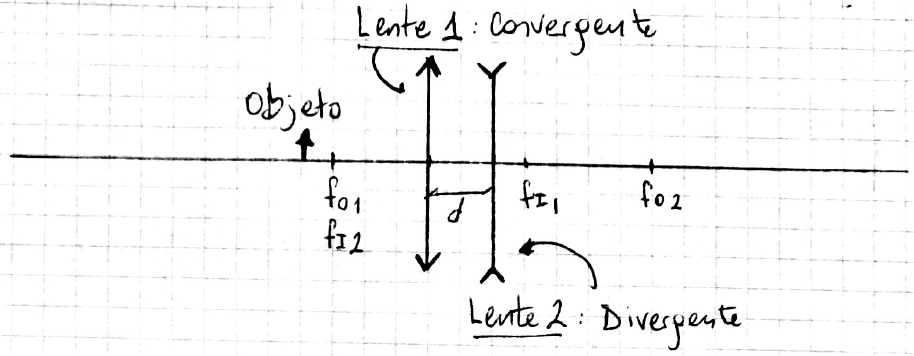 Lente 1 : Convergente
Objeto
fO1
fI2
d
fI1
fO2
Lente 2 : Divergente